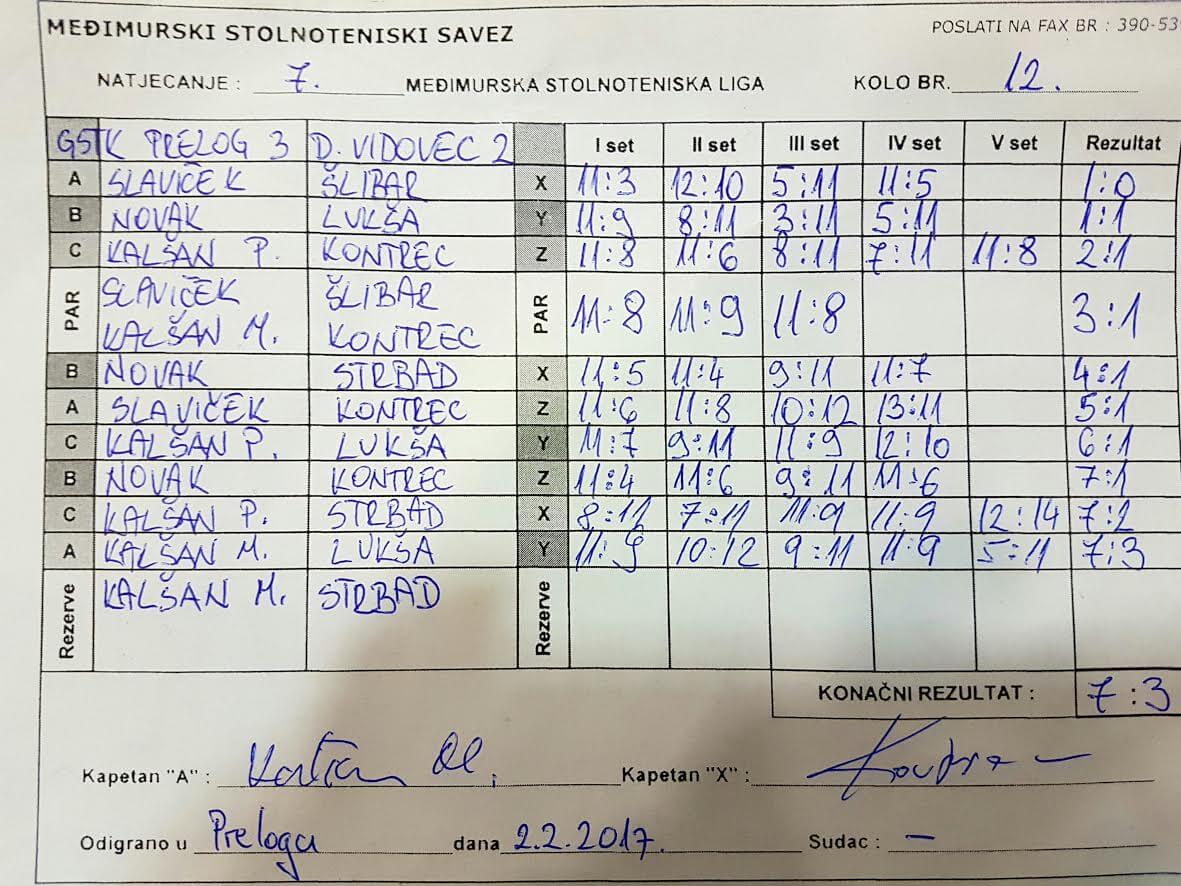 MEĐIMURSKI STOLNOTENISKI SAVEZ POSLATI NA FAX BR : 390-53
NATJECANJE : 7. MEĐIMURSKA STOLNOTENISKA LIGA KOLO BR. 12.
GSTK PRELOG 3 D. VIDOVEC 2 I set II set III set IV set V set Rezultat
A SLAVIČEK ŠLIBAR X 11:3 12:10 5:11 11:5 1:0
B NOVAK LUKŠA Y 11:9 8:11 3:11 5:11 1:1
C KALŠAN P. KONTREC Z 11:8 11:6 8:11 7:11 11:8 2:1
PAR SLAVIČEK ŠLIBAR PAR 11:8 11:9 11:8 3:1
KALŠAN M. KONTREC
B NOVAK STRBAD X 11:5 11:4 9:11 11:7 4:1
A SLAVIČEK KONTREC Z 11:6 11:8 10:12 13:11 5:1
C KALŠAN P. LUKŠA Y 11:7 9:11 11:9 12:10 6:1
B NOVAK KONTREC Z 11:4 11:6 9:11 11:6 7:1
C KALŠAN P. STRBAD X 8:11 7:11 11:9 11:9 12:14 7:2
A KALŠAN M. LUKŠA Y 11:9 10:12 9:11 11:9 5:11 7:3
Rezerve KALŠAN M. STRBAD Rezerve
KONAČNI REZULTAT : 7:3
Kapetan "A" : Kapetan "X" :
Odigrano u Prelogu dana 2.2.2017. Sudac : –